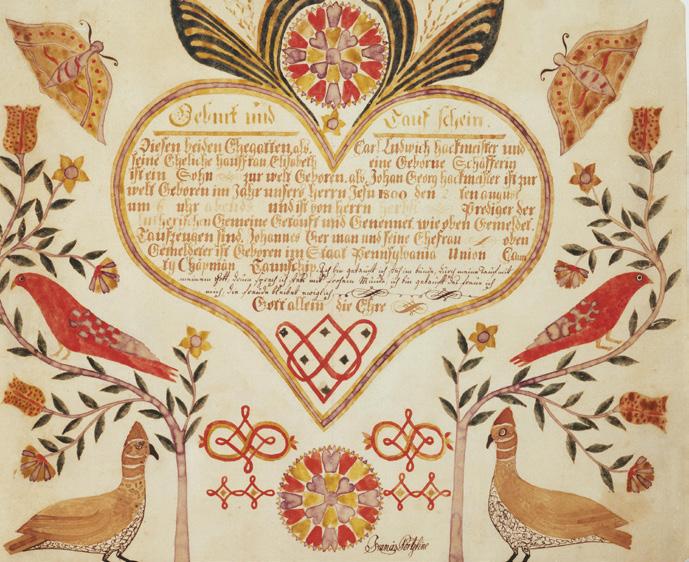 Geburt und Tauf schein.
Diesen beiden Ehegatten, als, Carl Ludwich hackmeister und
seine Eheliche hausfrau Elisabeth eine Geborne Schäfferin
ist ein Sohn zur welt Geboren, als, Johan Georg hackmeister ist zur
welt Geboren im Jahr unsers herrn Jesu 1800 den 2 ten august
um 6 uhr abends und ist von herrn Prediger der
Lutherischen Gemeine Getauft und Genennet wie oben Gemeldet.
Taufzeugen sind, Johannes German und seine Ehefrau oben
Gemeldeter ist Geboren im Staat Pensylvania Union Caun
ty Chapman Taunschip, Ich bin getauft ich steh im bunde, durch meine tauf mit
meinem Gott, ich mit frohem Munde ich bin getauft
ewiglich
Gott allein die Ehre
Francis Portzline